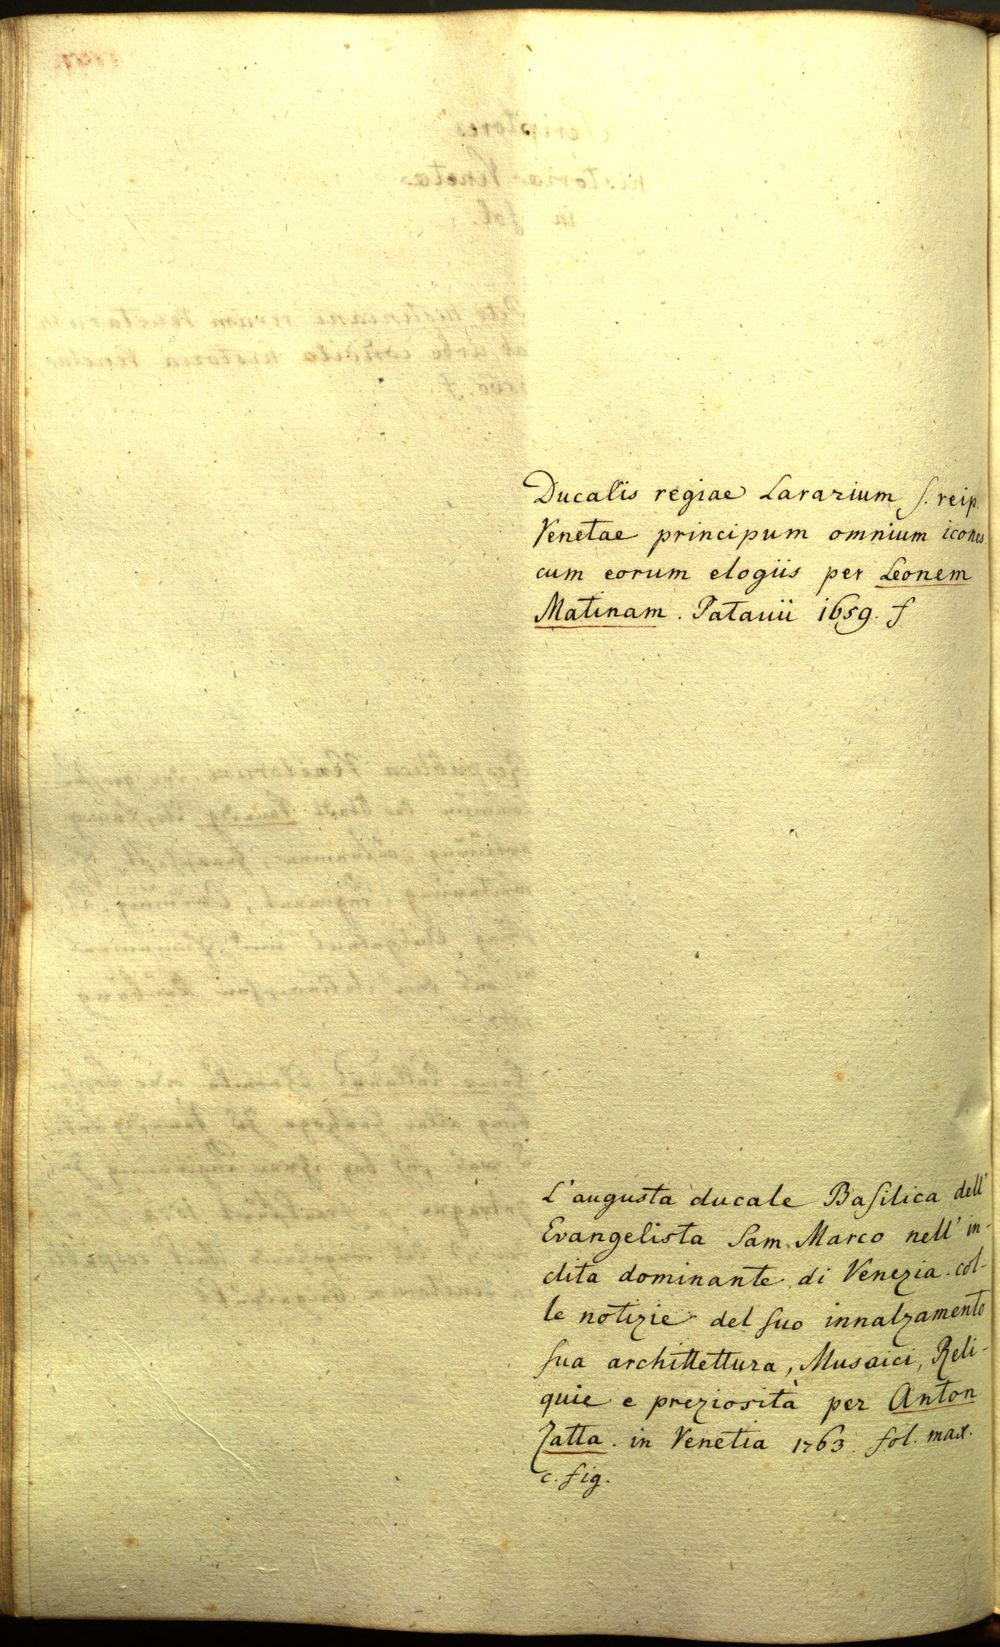 Ducalis regiae Lararium s. reip.
Venetae principum omnium icones
cum eorum elogiis per Leonem
Matinam. Patauii 1659. f
L'augusta ducale Basilica dell'
Evangelista Sam Marco nell' in-
clita dominante di Venezia col-
le notizie del suo innalzamento
sua archittettura, Musaici, Reli-
quie e preziosità per Anton
Zatta. in Venetia 1763 fol. max.
c. fig.